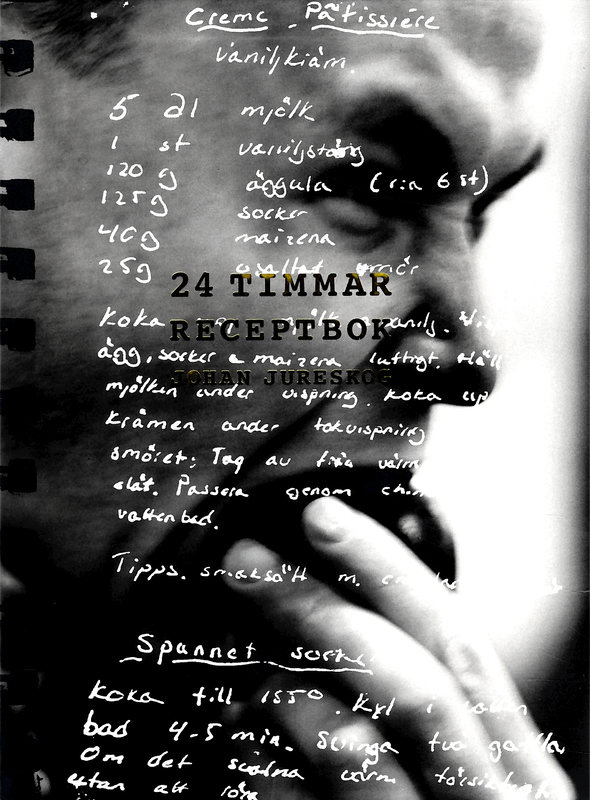 Creme Pâtissiére
Vaniljkräm.
5 dl mjölk
1 st vaniljstång
120 g äggula (c:a 6 st)
125 g socker
40 g maizena
25 g osaltat smör
24 TIMMAR
RECEPTBOK
JOHAN JURESKOG
Koka upp mjölk vanilj.
ägg, socker & maizena luftigt. Häll
mjölken under vispning. Koka up
Krämen under tokvispning
smöret; Tag av från värm
slät. Passera genom
vattenbad.
Tipps. smaksätt m.
Spunnet socker
Koka till 155°. Kyl i vatten
bad 4-5 min. Svinga två gafflar
Om det svalna värm försiktigt
utan att röra